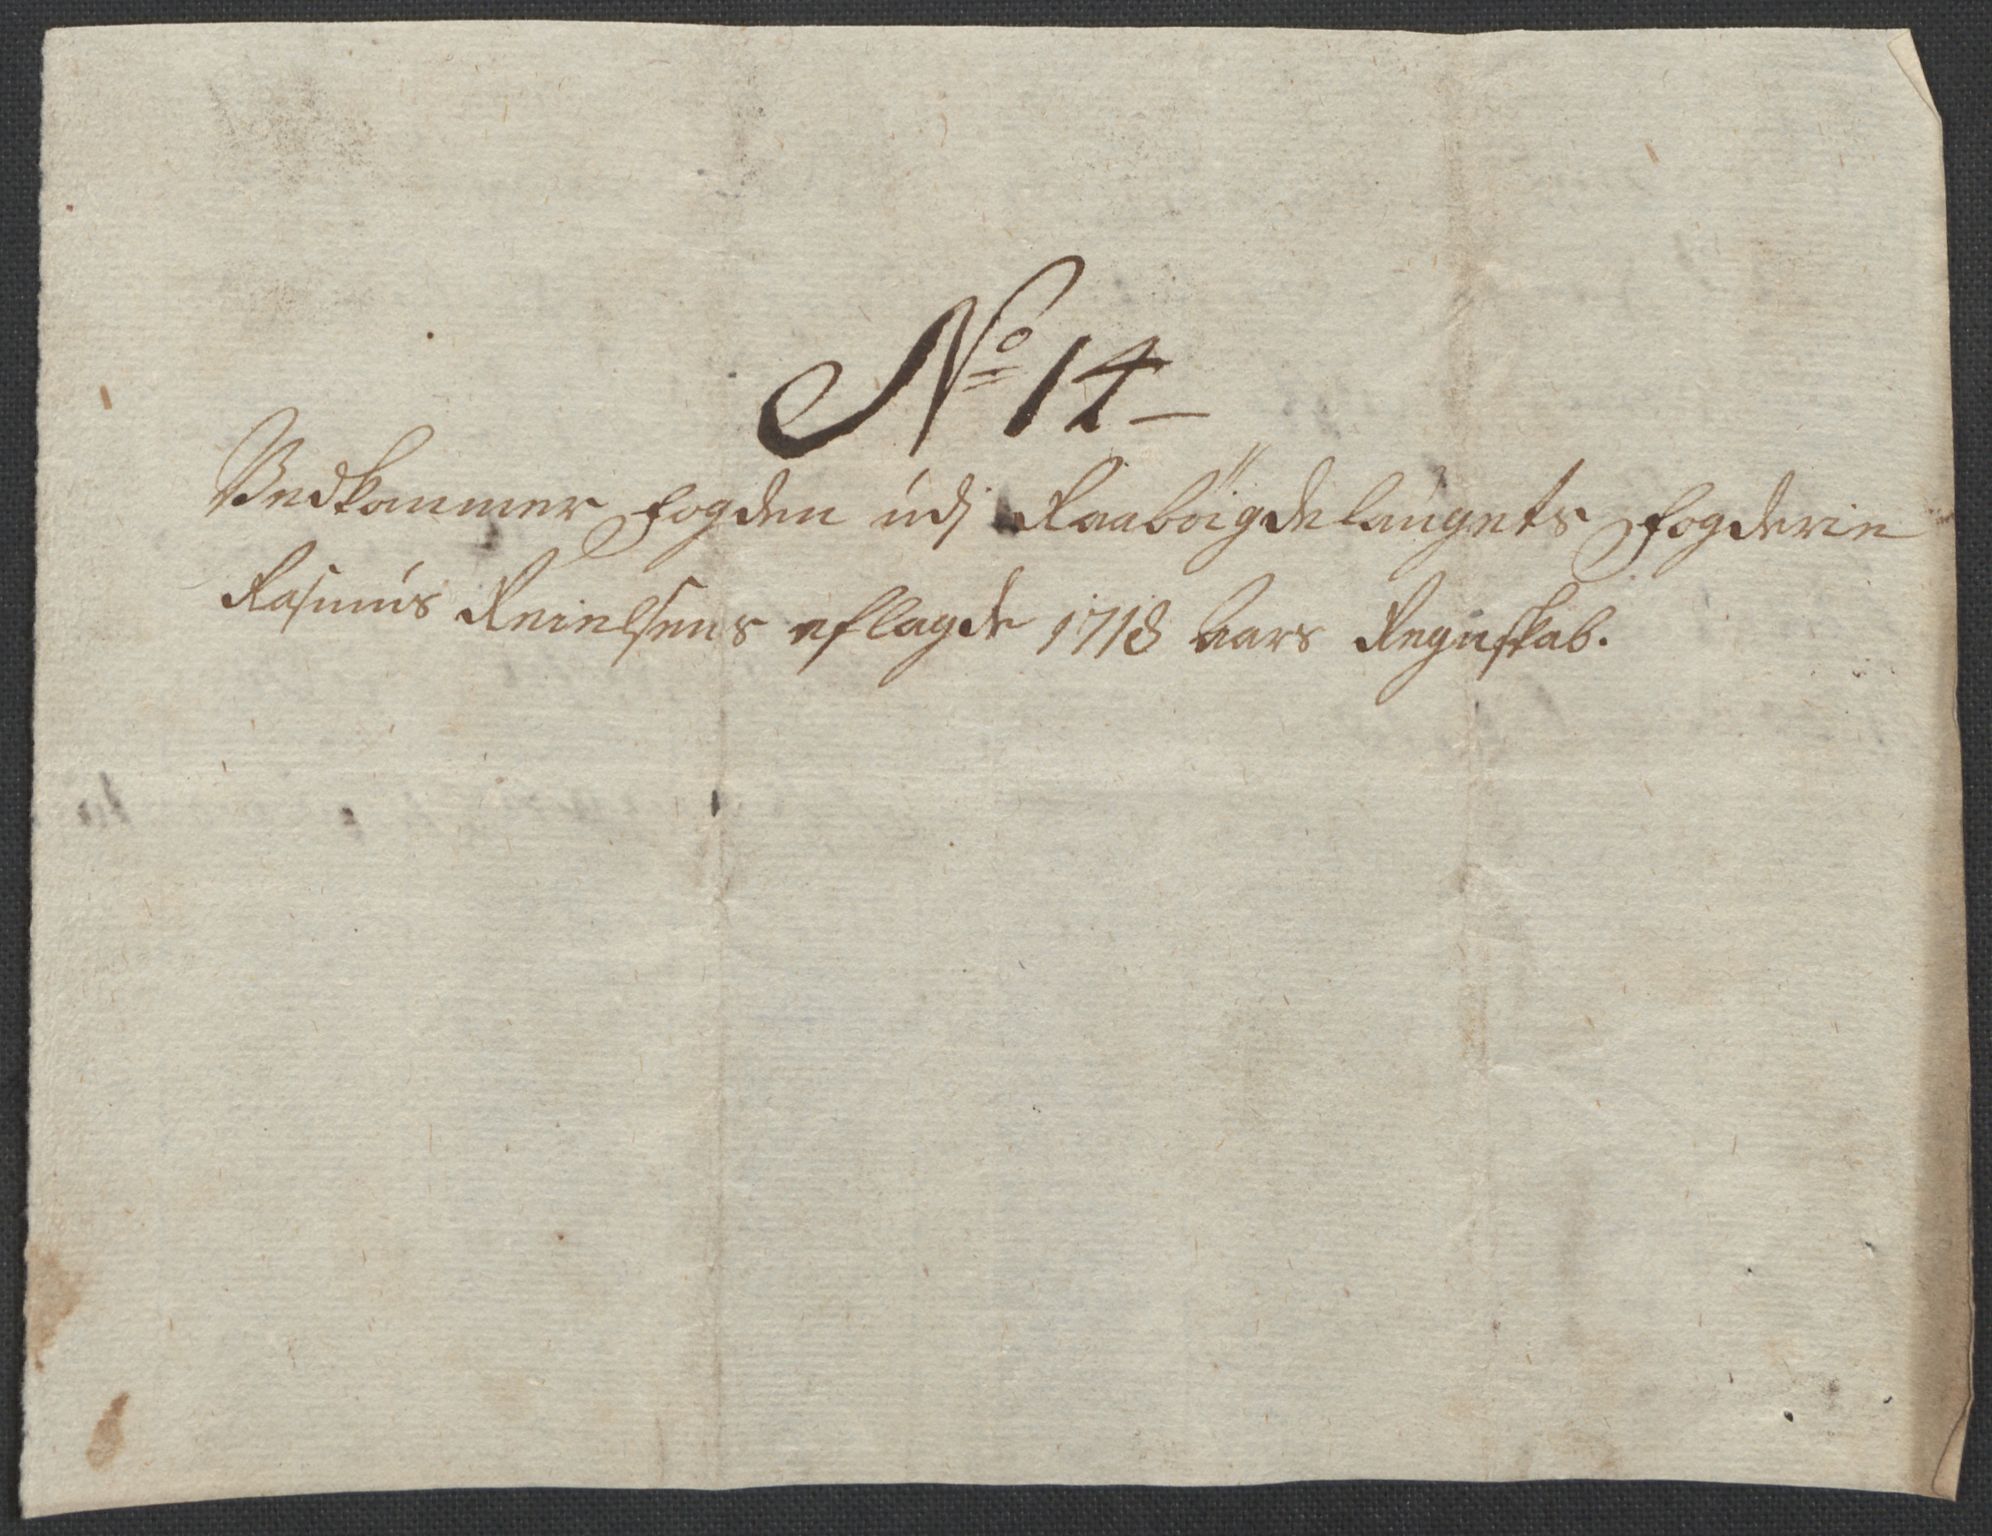 No 14
Vedkommer Fogden udj Raabÿigdelaugets Fogderie
Rasmus Reinelsens aflagde 1718 Aars Regnskab.